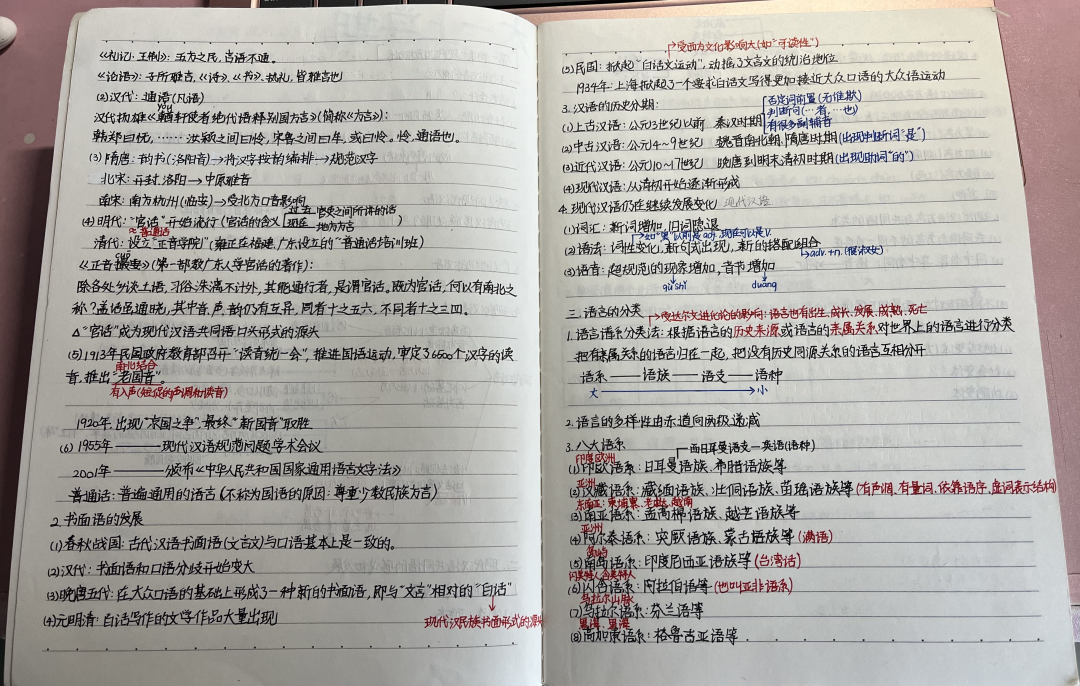 《礼记·王制》：五方之民，言语不通。
《论语》：子所雅言，《诗》、《书》、执礼，皆雅言也
(2)汉代：通语(凡语)
yóu
汉代扬雄《輶轩使者绝代语释别国方言》(简称《方言》)：
韩郑曰怃，……汝颍之间曰怜，宋鲁之间曰牟，或曰怜。怜，通语也。
(3)隋唐：韵书(洛阳音)→将汉字按韵编排→规范汉字
北宋：开封、洛阳→中原雅音
南宋：南方杭州(临安)→受北方口音影响
(4)明代："官话"开始流行(官话的含义 过去 官吏之间所讲的话
现在 地方方言)
≈普通话
清代：设立"正音学院"(雍正在福建、广东设立的"普通话培训班")
《正音撮要》(第一部教广东人学官话的著作)：
除各处乡谈土语，习俗侏漓不计外，其能通行者，是谓官话。既为官话，何以有南北之
称？盖话虽通晓，其中音、声、韵仍有互异，同者十之五六，不同者十之三四。
△"官话"成为现代汉语共同语口头形式的源头
(5)1913年民国政府教育部召开"读音统一会"，推进国语运动，审定了6500个汉字的读
南北结合
音，推出"老国音"。
有入声(短促的声调和读音)
1920年出现"京国之争"，最终"新国音"取胜
(6)1955年———现代汉语规范问题学术会议
2001年———颁布《中华人民共和国国家通用语言文字法》
普通话：普遍通用的语言(不称为国语的原因：尊重少数民族方言)
2.书面语的发展
(1)春秋战国：古代汉语书面语(文言文)与口语基本上是一致的。
(2)汉代：书面语和口语分歧开始变大
(3)晚唐五代：在大众口语的基础上形成了一种新的书面语，即与"文言"相对的"白话"
(4)元明清：白话写作的文学作品大量出现
现代汉民族书面形式的源头
受西方文化影响大(如"可读性")
(5)民国：掀起"白话文运动"，动摇了文言文的统治地位
1934年：上海掀起了一个要求白话文写得更加接近大众口语的大众语运动
3.汉语的历史分期：
否定词前置(无谁欺)
判断词(…者，…也)
有很多副辅音
(1)上古汉语：公元3世纪以前 秦汉时期
(2)中古汉语：公元4~9世纪 魏晋南北朝、隋唐时期(出现判断词"是")
(3)近代汉语：公元10~17世纪 晚唐到明末清初时期(出现助词"的")
(4)现代汉语：从清初开始逐渐形成
4.现代汉语仍在继续发展变化 现代汉语
(1)词汇：新词增加，旧词隐退
以前是adj.现在可以是v.
(2)语法：词性变化，新句式出现，新的搭配组合
adv.+n.(很淑女)
(3)语音：超规范的现象增加，音节增加
qù shì duāng
三.语言的分类 受达尔文进化论的影响：语言也有出生、成长、发展、成熟、死亡
1.语言谱系分类法：根据语言的历史来源或语言的亲属关系对世界上的语言进行分类
把有亲属关系的语言归在一起，把没有历史同源关系的语言互相分开
语系——语族——语支——语种
大→小
2.语言的多样性由赤道向两极递减
3.八大语系 西日耳曼语支—英语(语种)
印度欧洲
(1)印欧语系：日耳曼语族、希腊语族等
亚洲
(2)汉藏语系：藏缅语族、壮侗语族、苗瑶语族等(有声调、有量词、依靠语序、虚词表示结构)
东南亚：柬埔寨、老挝、越南
(3)南亚语系：孟高棉语族、越芒语族等
亚洲
(4)阿尔泰语系：突厥语族、蒙古语族等(满语)
(5)南岛语系：印度尼西亚语族等(台湾话)
闪米特人、含米特人
(6)闪含语系：阿拉伯语等(也叫亚非语系)
乌拉尔山脉
(7)乌拉尔语系：芬兰语等
黑海、里海
(8)高加索语系：格鲁吉亚语等